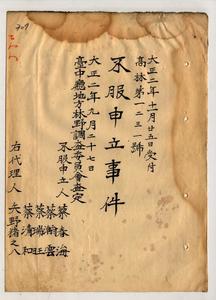 大正二年十一月廿五日受付
高林第一二三一號
不服申立事件
大正二年九月二十七日
臺中廳地方林野調査委員會査定
不服申立人
蔡春海
蔡瑞旺
蔡清和
右代理人